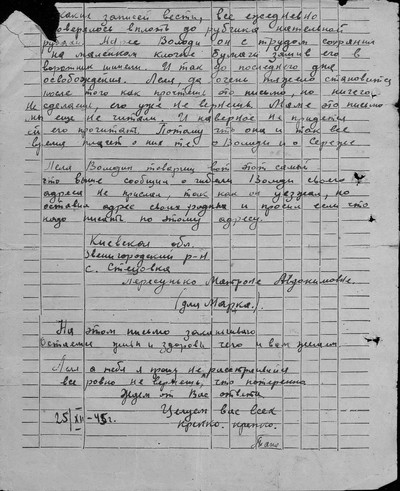 каких записей вести, все ежедневно
проверялось вплоть до рубчика нательной
рубахи. Но Володи он с трудом сохранил
на маленьком клочке бумаги зашив его в
воротник шинели. И так до последнего дня
освобождения. Леля, да очень тяжело становится
после того как прочтешь это письмо, но ничего
не сделаешь, его уже не вернешь. Маме это письмо
мы еще не читали. И наверное не придется
ей его прочитать. Потому что она и так все
время плачет о них о Володи и о Сереже.
Леля Володин товарищ вот этот самый
что выше сообщил о гибели Володи своего
адреса не прислал, так как он уезжал, но
оставил адрес своих родных и просил если что
надо писать по этому адресу.
Киевская обл.
Звенигородский р-н
с. Стецовка
Пересунько Матроне Авдокимовне.
(для Марка).
На этом письмо заканчиваю
Остаемся живы и здоровы чего и вам желаем
Леля а тебя я прошу не расстраивайся
все ровно не вернешь, что потеряно
Ждем от Вас ответа
Целуем вас всех
25/XII-45г. Крепко крепко.